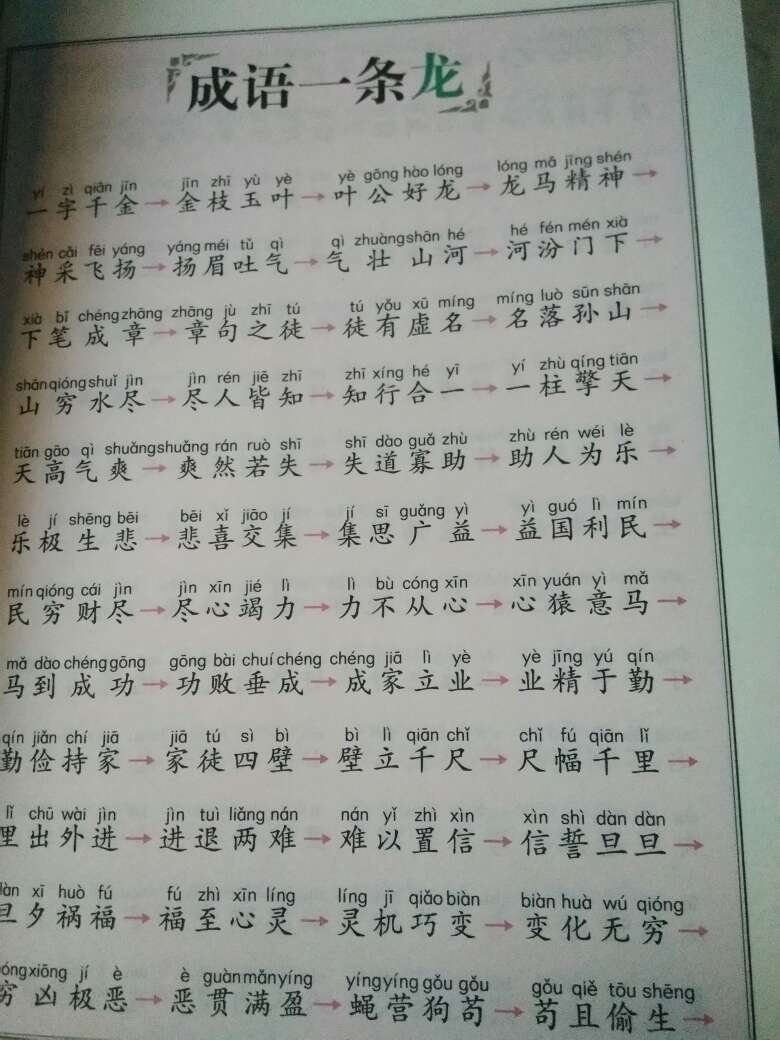 成语一条龙
yí zì qiān jīn jīn zhī yù yè yè gōng hào lóng lóng mǎ jīng shén
一字千金→金枝玉叶→叶公好龙→龙马精神→
shén cǎi fēi yáng yáng méi tǔ qì qì zhuàng shān hé hé fén mén xià
神采飞扬→扬眉吐气→气壮山河→河汾门下→
xià bǐ chéng zhāng zhāng jù zhī tú tú yǒu xū míng míng luò sūn shān
下笔成章→章句之徒→徒有虚名→名落孙山→
shān qióng shuǐ jìn jìn rén jiē zhī zhī xíng hé yī yí zhù qíng tiān
山穷水尽→尽人皆知→知行合一→一柱擎天→
tiān gāo qì shuǎng shuǎng rán ruò shī shī dào guǎ zhù zhù rén wéi lè
天高气爽→爽然若失→失道寡助→助人为乐→
lè jí shēng bēi bēi xǐ jiāo jí jí sī guǎng yì yì guó lì mín
乐极生悲→悲喜交集→集思广益→益国利民→
mín qióng cái jìn jìn xīn jié lì lì bù cóng xīn xīn yuán yì mǎ
民穷财尽→尽心竭力→力不从心→心猿意马→
mǎ dào chéng gōng gōng bài chuí chéng chéng jiā lì yè yè jīng yú qín
马到成功→功败垂成→成家立业→业精于勤→
qín jiǎn chí jiā jiā tú sì bì bì lì qiān chǐ chǐ fú qiān lǐ
勤俭持家→家徒四壁→壁立千尺→尺幅千里→
lǐ chū wài jìn jìn tuì liǎng nán nán yǐ zhì xìn xìn shì dàn dàn
里出外进→进退两难→难以置信→信誓旦旦→
dàn xī huò fú fú zhì xīn líng líng jī qiǎo biàn biàn huà wú qióng
旦夕祸福→福至心灵→灵机巧变→变化无穷→
xiōng jí è è guàn mǎn yíng yíng yíng gǒu gǒu gǒu qiě tōu shēng
穷凶极恶→恶贯满盈→蝇营狗苟→苟且偷生→